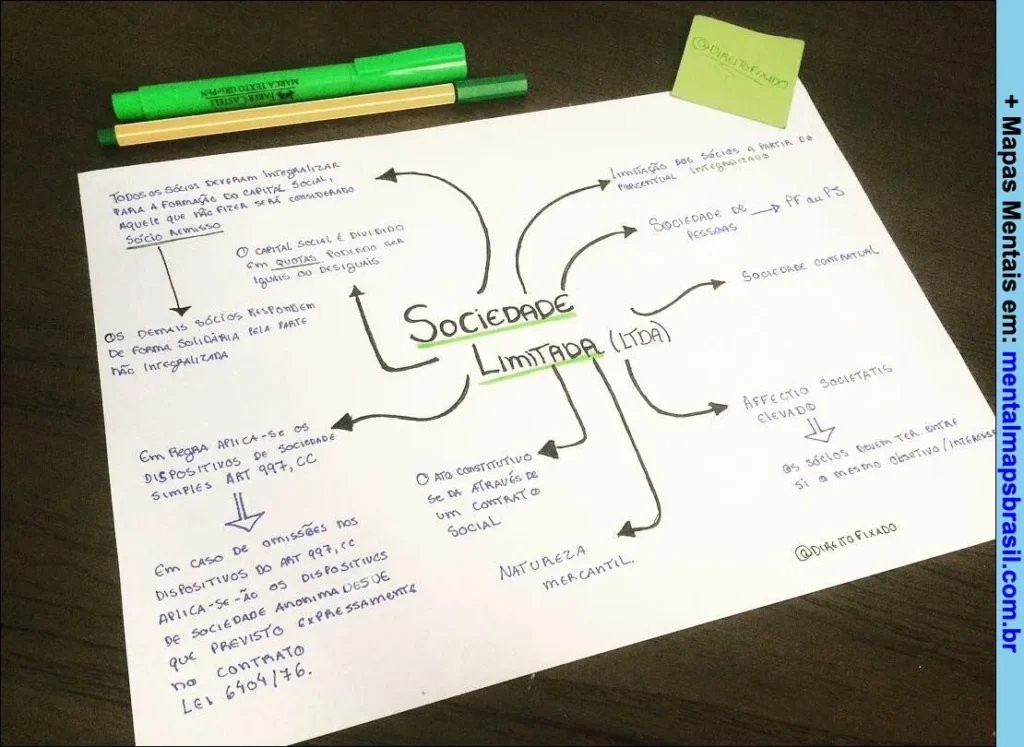 @DIREITOFIXADO
FABER-CASTELL
MARCA TEXTO GRIFPEN
TODOS OS SÓCIOS DEVERAM INTEGRALIZAR
PARA A FORMAÇÃO DO CAPITAL SOCIAL,
AQUELE QUE NÃO FIZER SERÁ CONSIDERADO
SÓCIO REMISSO
OS DEMAIS SÓCIOS RESPONDEM
DE FORMA SOLIDÁRIA PELA PARTE
NÃO INTEGRALIZADA
O CAPITAL SOCIAL É DIVIDIDO
EM QUOTAS PODENDO SER
IGUAIS OU DESIGUAIS
LIMITAÇÃO DOS SÓCIOS A PARTIR DO
PORCENTUAL INTEGRALIZADO
SOCIEDADE DE PESSOAS → PF OU PJ
SOCIEDADE CONTRATUAL
SOCIEDADE
LIMITADA (LTDA)
AFFECTIO SOCIETATIS
ELEVADO
OS SÓCIOS DEVEM TER ENTRE
SI O MESMO OBJETIVO/INTERESSE
EM REGRA APLICA-SE OS
DISPOSITIVOS DE SOCIEDADE
SIMPLES ART 997, CC
EM CASO DE OMISSÕES NOS
DISPOSITIVOS DO ART 997, CC
APLICA-SE-ÃO OS DISPOSITIVOS
DE SOCIEDADE ANONIMA DESDE
QUE PREVISTO EXPRESSAMENTE
NO CONTRATO
LEI 6404/76.
O ATO CONSTITUTIVO
SE DA ATRAVÉS DE
UM CONTRATO
SOCIAL
NATUREZA
MERCANTIL.
@DIREITOFIXADO
+ Mapas Mentais em: mentalmapsbrasil.com.br